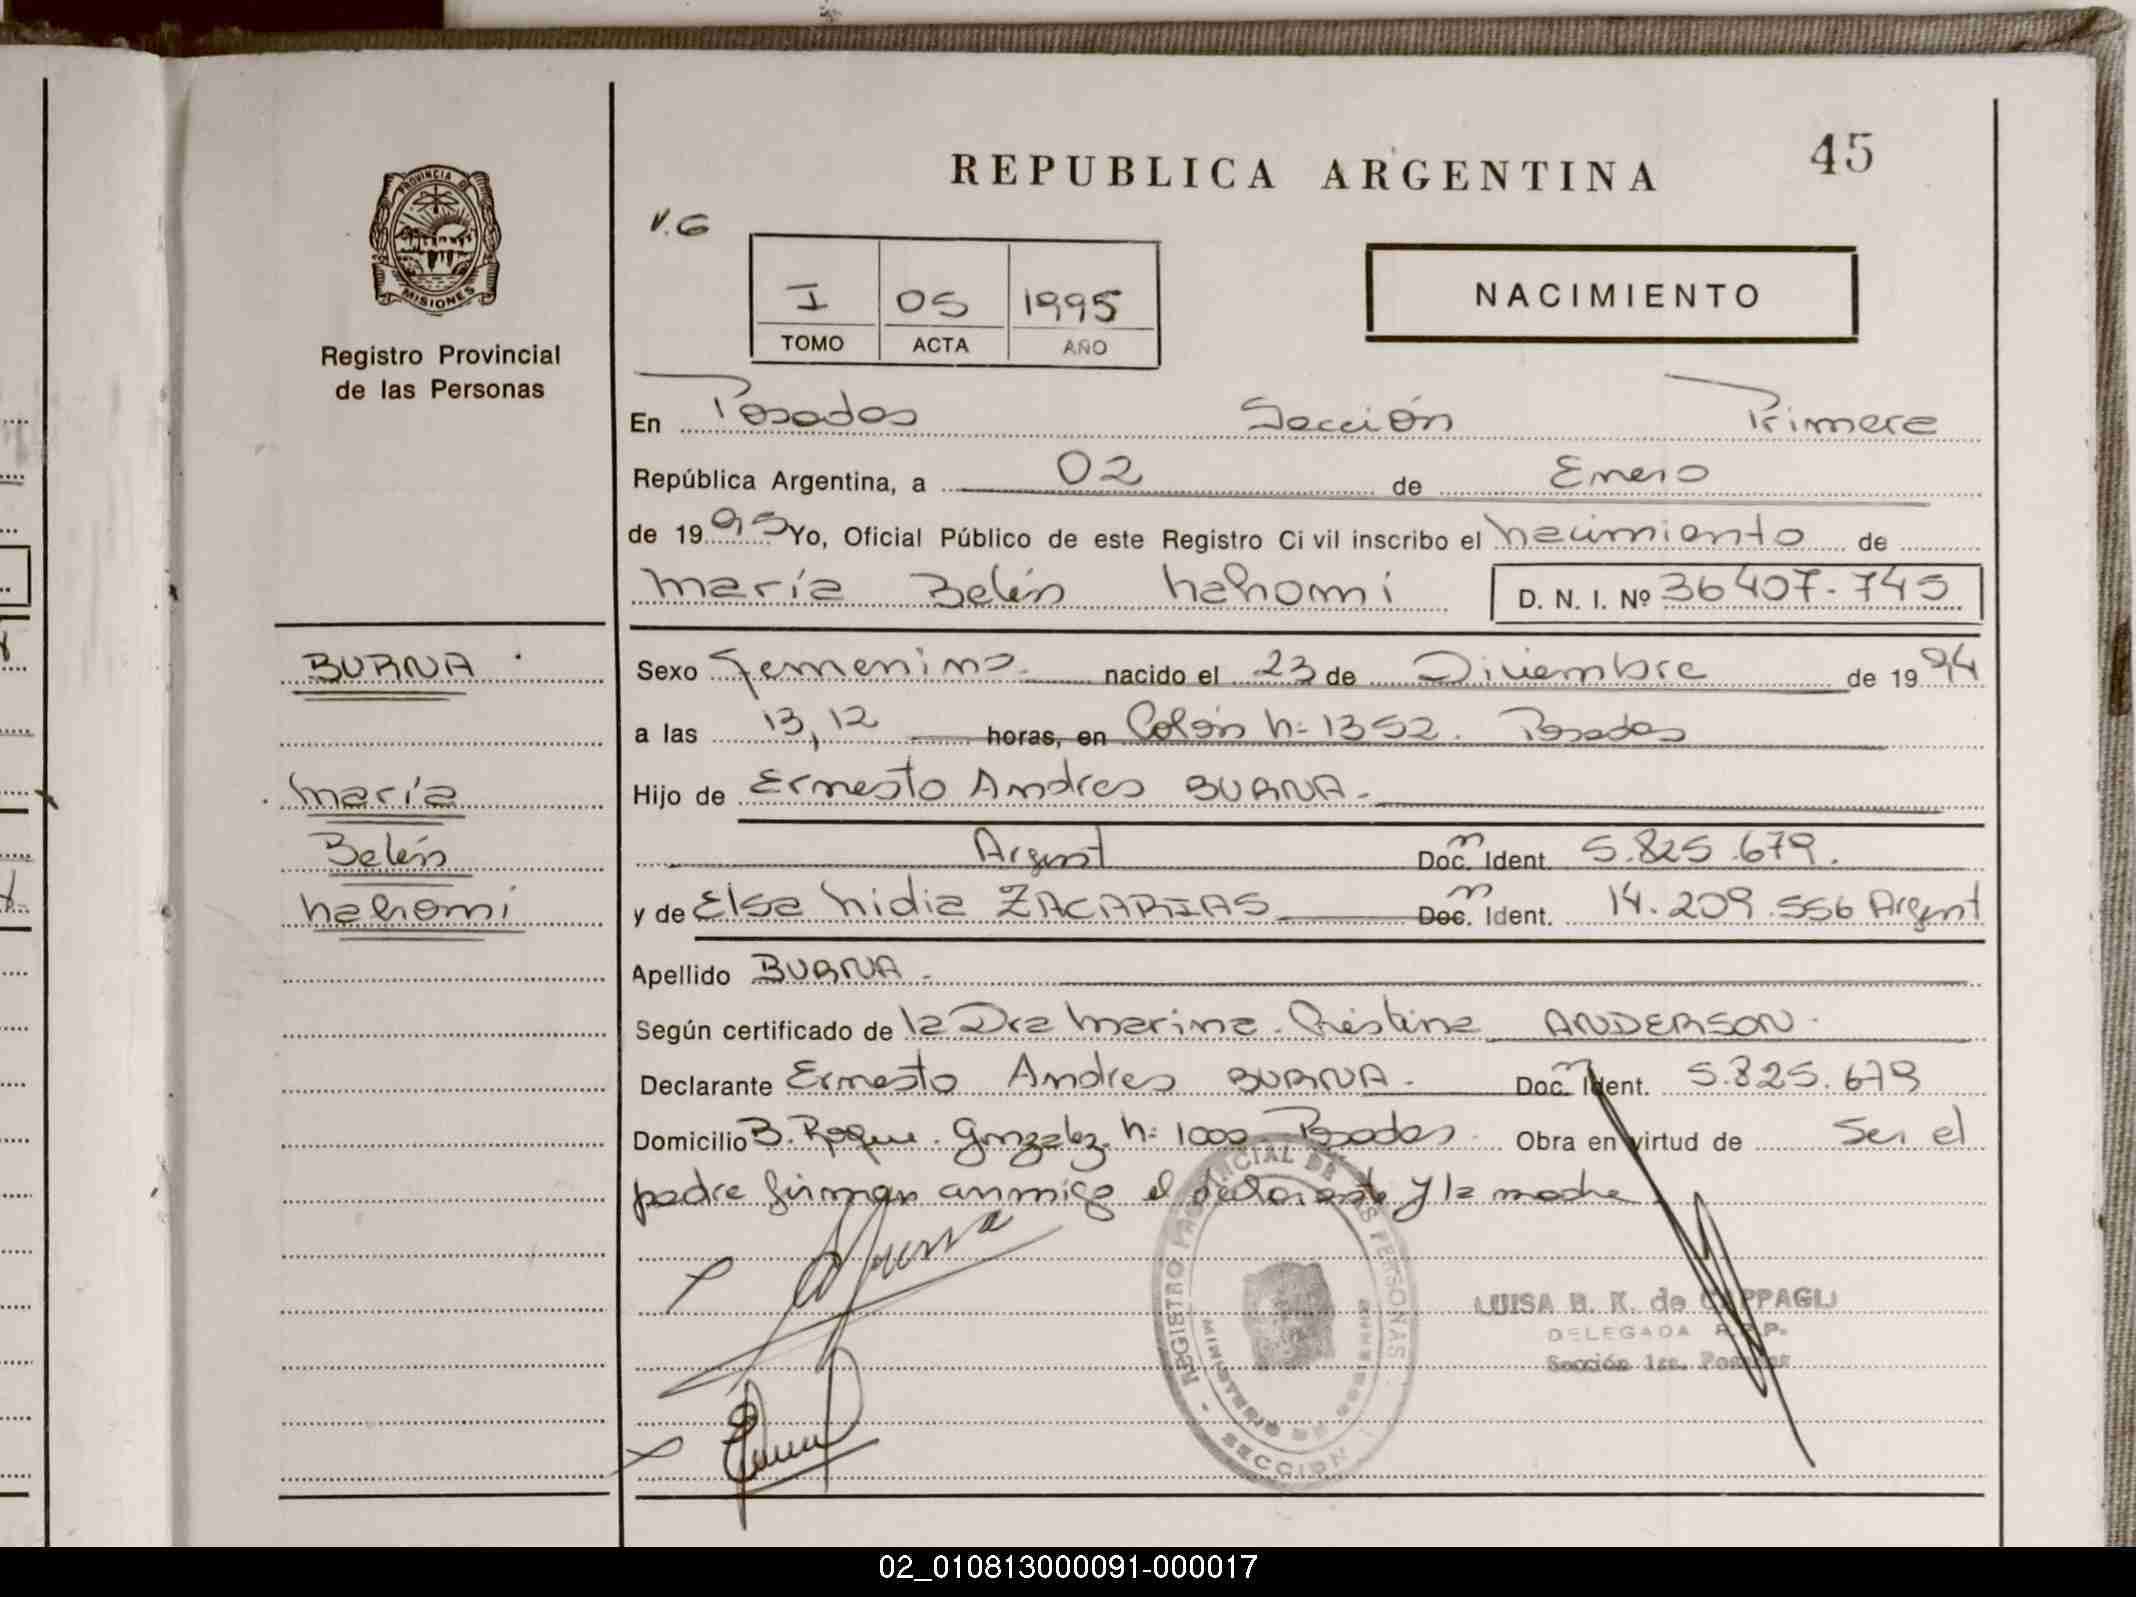 REPUBLICA ARGENTINA
45
V.G
I 05 1995
TOMO ACTA AÑO
NACIMIENTO
PROVINCIA DE
MISIONES
Registro Provincial
de las Personas
BURNA
María
Belén
Nahomi
En Posadas Sección Primera
República Argentina, a 02 de Enero
de 1995 Yo, Oficial Público de este Registro Civil inscribo el Nacimiento de
María Belén Nahomi D. N. I. Nº 36407-745
Sexo Femenino nacido el 23 de Diciembre de 1994
a las 13,12 horas, en Colón N= 1352. Posadas
Hijo de Ernesto Andres BURNA.
Argent Doc. Ident. 5.825.679.
y de Elsa Nidia ZACARIAS Doc. Ident. 14.209.556 Argent
Apellido BURNA.
Según certificado de la Dra Marina Cristina ANDERSON.
Declarante Ernesto Andres BURNA. Doc. Ident. 5.825.679
Domicilio B. Roque Gonzalez N= 1000 Posadas Obra en virtud de Ser el
padre firman conmigo el declarante y la madre
REGISTRO PROVINCIAL DE LAS PERSONAS
MINISTERIO DE GOBIERNO
SECCION
LUISA B. K. de CAPPAGLI
DELEGADA R.P.P.
Sección 1ra. Posadas
02_010813000091-000017